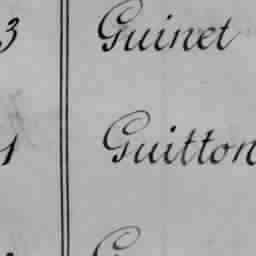 3 Guinet
1 Guitton